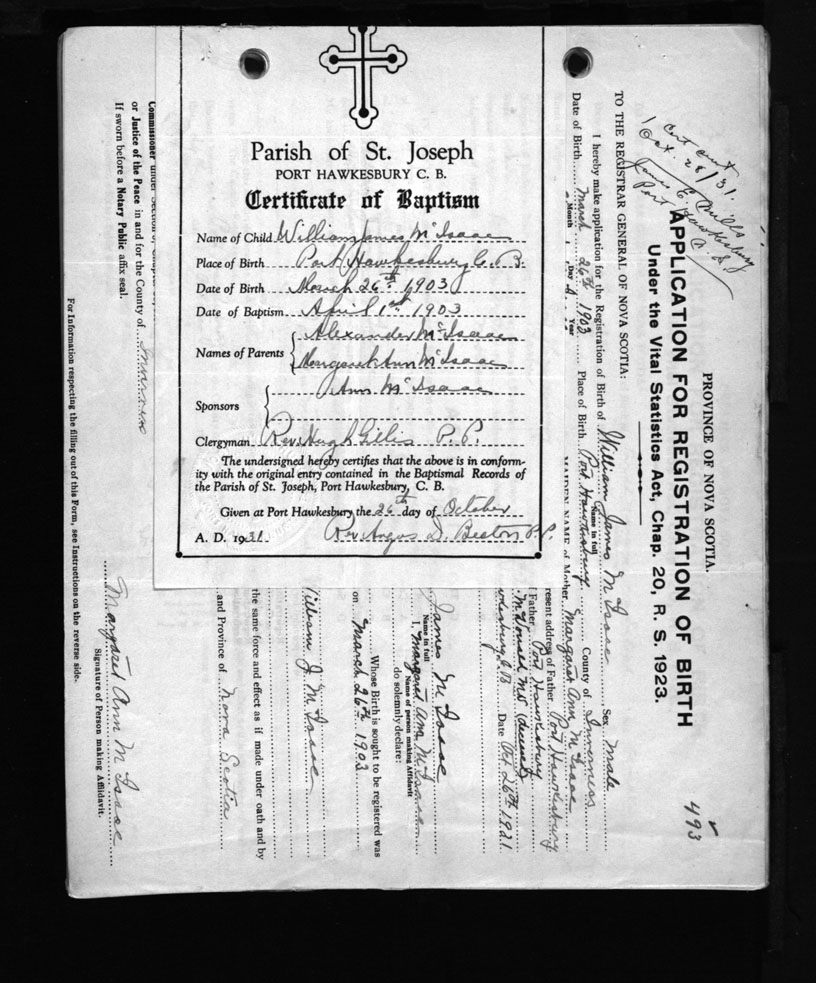 Parish of St. Joseph
PORT HAWKESBURY C. B.
Certificate of Baptism
Name of Child William James McIsaac
Place of Birth Port Hawkesbury C. B.
Date of Birth March 26th 1903
Date of Baptism April 1st 1903
Names of Parents { Alexander McIsaac
Margaret Ann McIsaac
Sponsors { Ann McIsaac
Clergyman Rev. Hugh Gillis P. P.
The undersigned hereby certifies that the above is in conform-
ity with the original entry contained in the Baptismal Records of
the Parish of St. Joseph, Port Hawkesbury, C. B.
Given at Port Hawkesbury the 26th day of October
A. D. 1931. Rev. Angus D. Beaton P.P.
Cert sent
Oct. 28/31.
James E Mills
Port Hawkesbury
C. B.
493
PROVINCE OF NOVA SCOTIA.
APPLICATION FOR REGISTRATION OF BIRTH
Under the Vital Statistics Act, Chap. 20, R. S. 1923.
TO THE REGISTRAR GENERAL OF NOVA SCOTIA:
I hereby make application for the Registration of Birth of William James McIsaac Sex Male
Name in full
Date of Birth March 26th 1903 Place of Birth Port Hawkesbury County of Inverness
Month Day Year
MAIDEN NAME of Mother Margaret Ann McIsaac
resent address of Father Port Hawkesbury
f Father Port Hawkesbury
Date Oct 26th 1931
James McIsaac
Name in full
I, Margaret Ann McIsaac
Name of person making Affidavit
do solemnly declare:
Whose Birth is sought to be registered was
on March 26th 1903
William J. McIsaac
the same force and effect as if made under oath and by
and Province of Nova Scotia
Margaret Ann McIsaac
Signature of Person making Affidavit.
or Justice of the Peace in and for the County of Inverness
If sworn before a Notary Public affix seal.
For Information respecting the filling out of this Form, see Instructions on the reverse side.